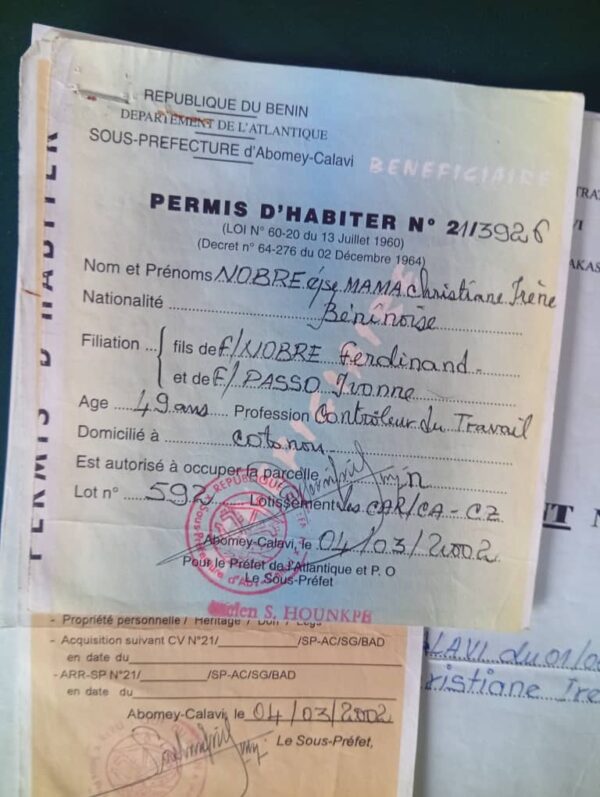 REPUBLIQUE DU BENIN
DEPARTEMENT DE L'ATLANTIQUE
SOUS-PREFECTURE d'Abomey-Calavi
BENEFICIAIRE
PERMIS D'HABITER N° 21/3926
(LOI N° 60-20 du 13 Juillet 1960)
(Decret n° 64-276 du 02 Décembre 1964)
Nom et Prénoms NOBRE épse MAMA Christiane Irène
Nationalité Béninoise
Filiation fils de F/NOBRE Ferdinand
et de F/PASSO Ivonne
Age 49 ans Profession Contrôleur du Travail
Domicilié à cotonou
Est autorisé à occuper la parcelle
Lot n° 592 Lotissement CAR/CA-CZ
Abomey-Calavi, le 04/03/2002
Pour le Préfet de l'Atlantique et P. O
Le Sous-Préfet
S. HOUNKPE
PERMIS D'HABITER
- Propriété personnelle / Héritage / Don / Legs
- Acquisition suivant CV N°21/ /SP-AC/SG/BAD
en date du
- ARR-SP N°21/ /SP-AC/SG/BAD
en date du
Abomey-Calavi, le 04/03/2002
Le Sous-Préfet,